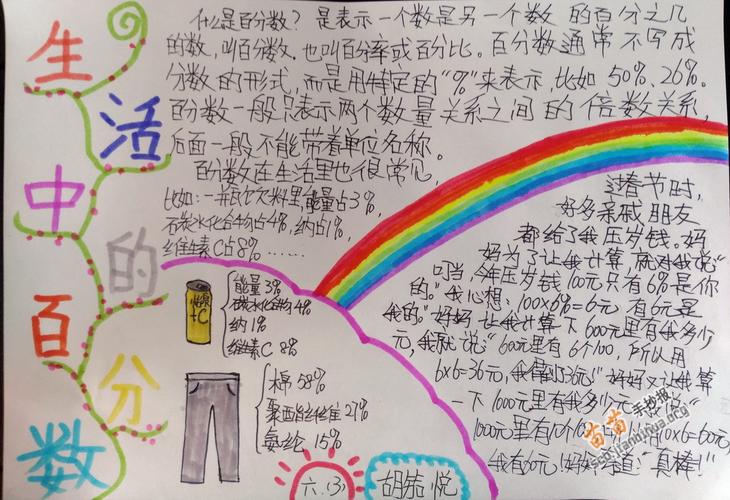 生活中的百分数
什么是百分数？是表示一个数是另一个数的百分之几
的数，叫百分数。也叫百分率或百分比。百分数通常不写成
分数的形式，而是用特定的“%”来表示，比如50%、26%。
百分数一般只表示两个数量关系之间的倍数关系，
后面一般不能带着单位名称。
百分数在生活里也很常见，
比如：一并瓦饮料里，能量占3%，
碳水化合物占4%，纳占1%，
维生素C占8%……
能量3%
碳水化合物4%
纳1%
维生素C 8%
+C
棉58%
聚酉旨纤维27%
氨纶15%
过春节时，
好多亲戚朋友
都给了我压岁钱。妈
妈为了让我计算，就对我说“
叮当，今年压岁钱100元只有6%是你
的。”我心想：100×6%=6元，有6元是
我的。”妈妈让我计算一下600元里有我多少
元，我就说：“600元里有6个100，所以用
6×6=36元，我得到36元。”妈妈又让我算
一下1000元里有我多少元
1000元里有10个10
10×6=60元，
我有60元！妈妈
道：“真棒！”
六.(3)
胡喆悦
苗苗手抄报
scb.fanbihua.org